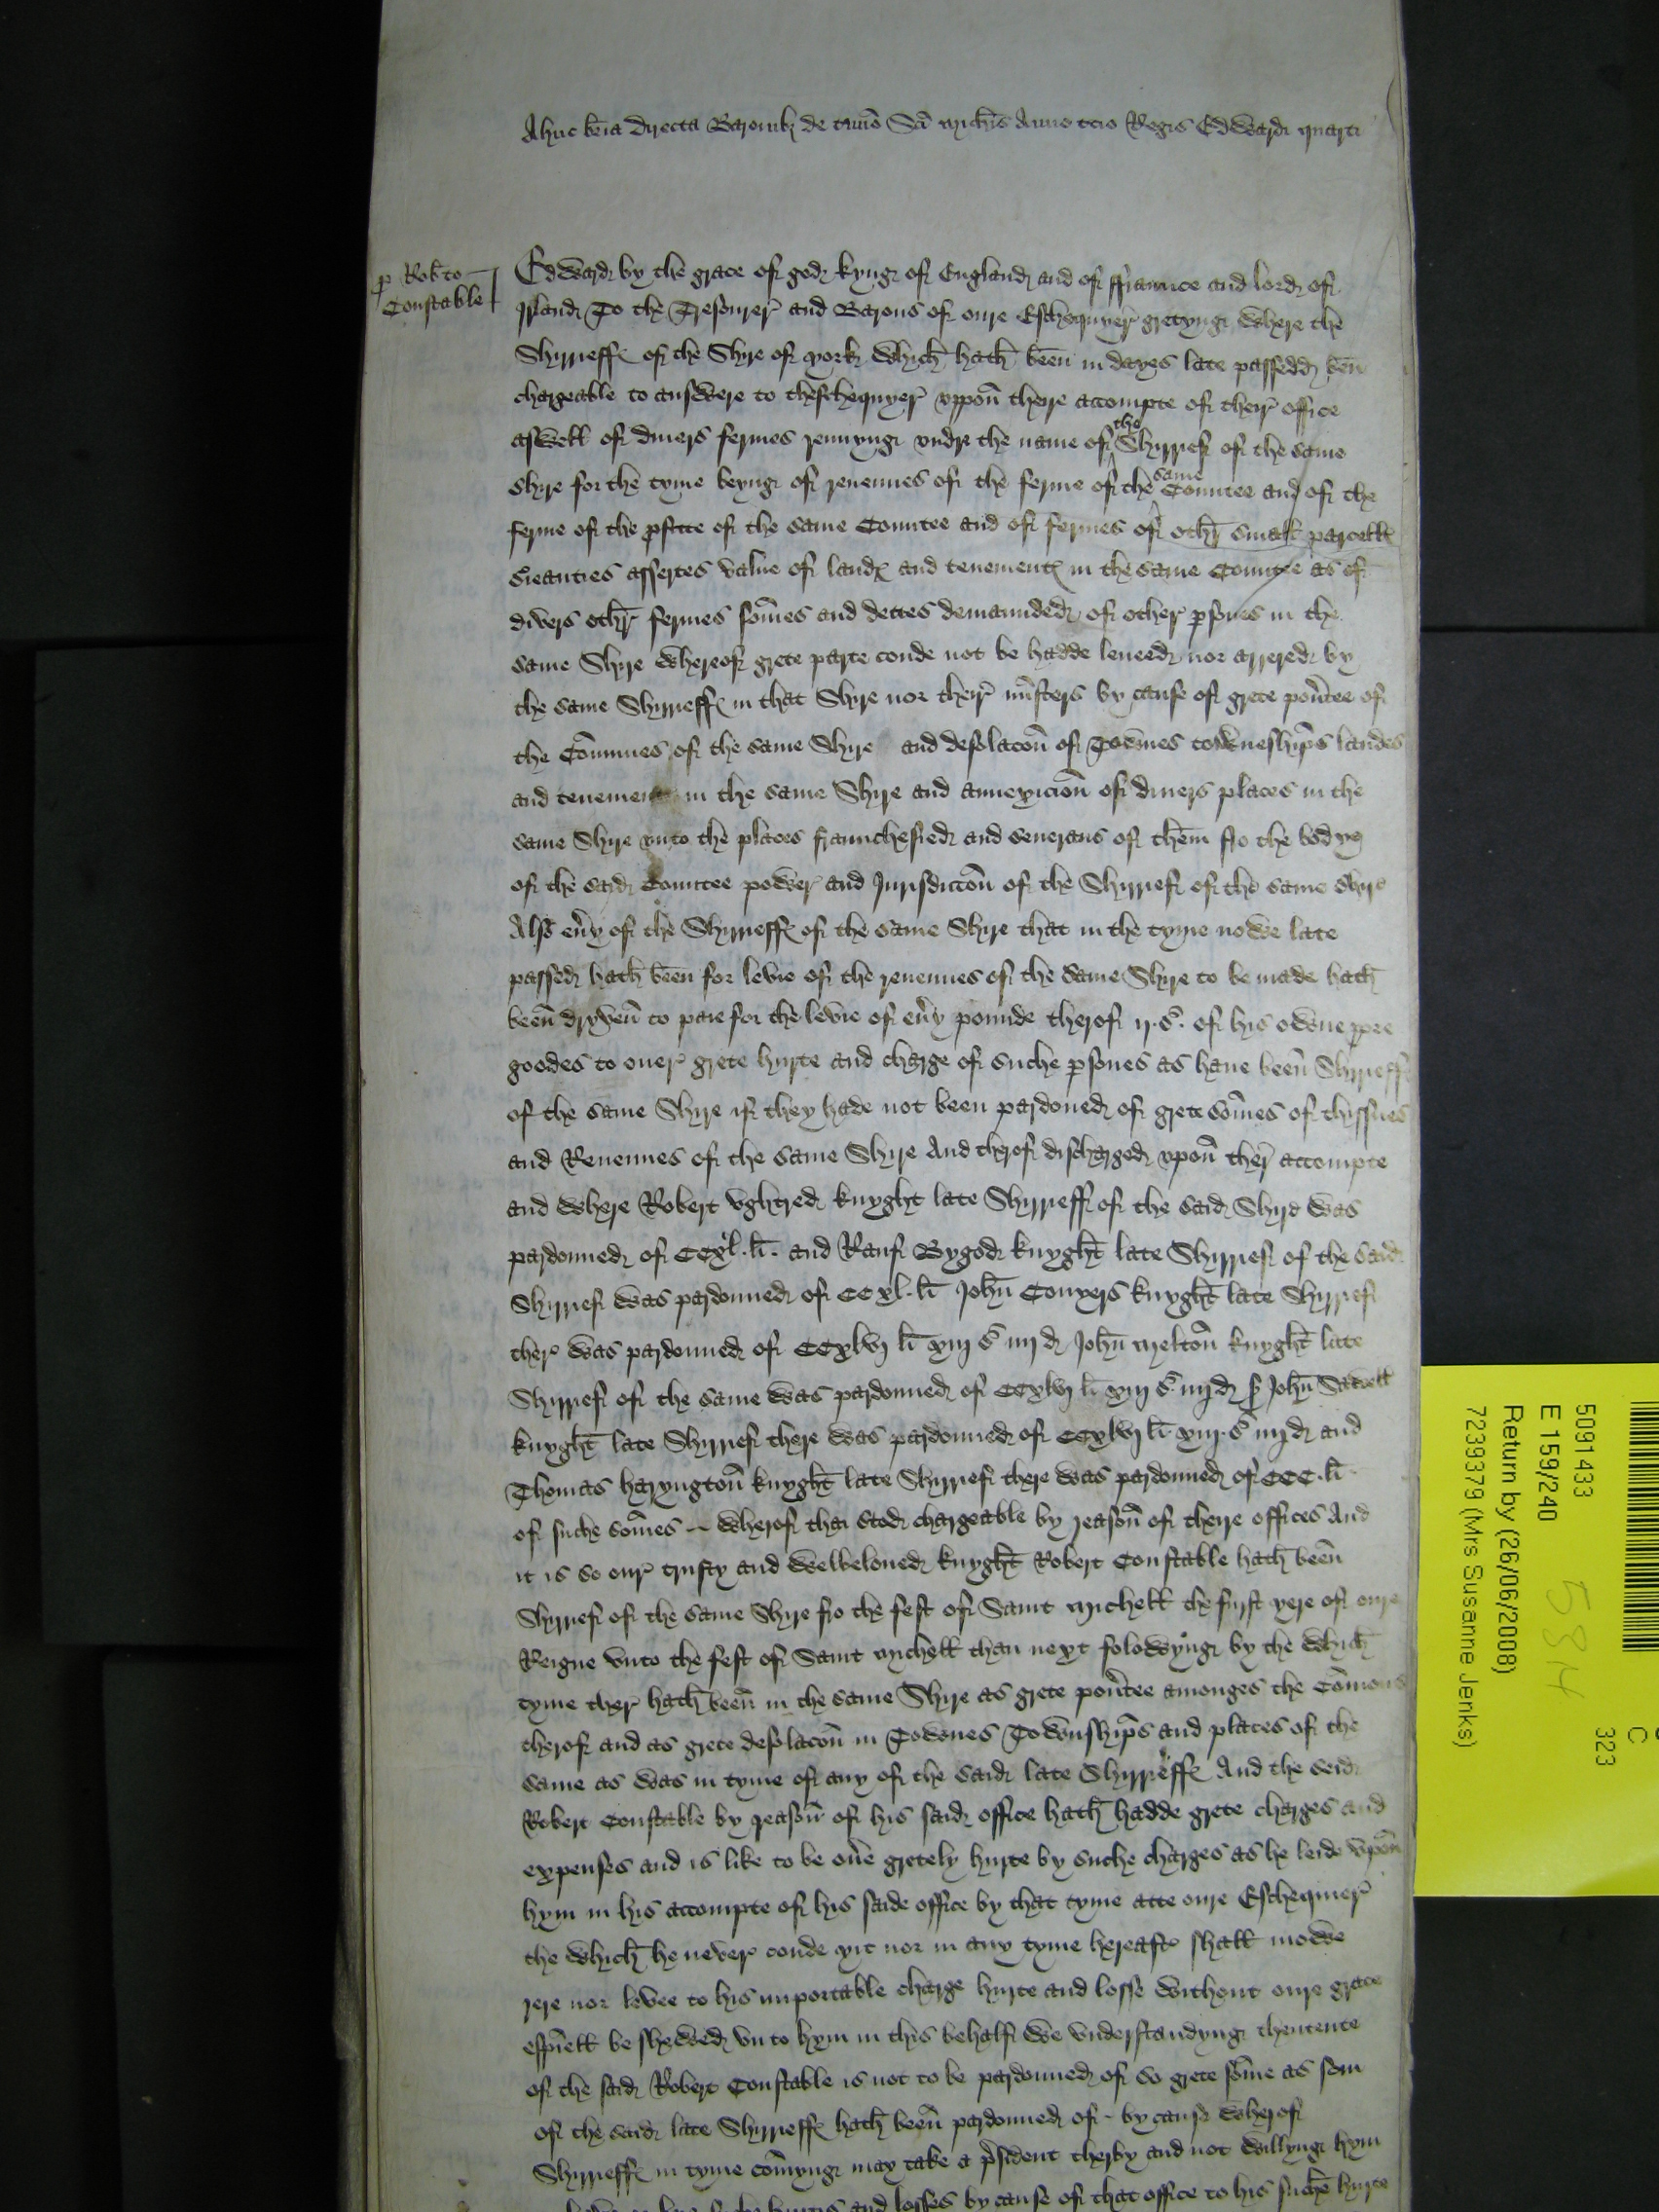 Adhuc brevia directa Baronibus de termino Sancti Michaelis Anno tercio Regis Edwardi quarti
p Robto
Constable
Edward by the grace of god kyng of England and of ffraunce and lord of
Irland To the Tresourer and Barons of oure Eschequyer gretyng where the
Shirrieffs of the Shire of york which hath been in dayes late passedd ben
chargeable to answere to theschequyer vppon theire accompte of their office
aswell of diuers fermes rennyng vndre the name of the Shirrief of the same
shire for the tyme beyng of reuenues of the ferme of the same Countee and of the
ferme of the profitte of the same Countee and of fermes of other small parcell
sieanties assertes value of lands and tenements in the same Countee as of
divers other fermes sommes and dettes demaunded of other psones in the
same Shire whereof grete parte coude not be hadde leueed nor arrered by
the same Shirrieffs in that Shire nor their ministers by cause of grete pouertee of
the Commues of the same Shire and desolacon of Townes towneshipps landes
and tenements in the same Shire and annexicion of diuers places in the
same Shire vnto the places fraunchesied and seuerans of them fro the body
of the said Countee power and Jurisdiccon of the Shirrief of the same Shire
Also euery of the Shirrieffs of the same Shire that in the tyme nowe late
passed hath been for levie of the reuenues of the same Shire to be made hath
been dryven to paie for the levie of euery pounde therof ij. s. of his owne ppre
goodes to ouer grete hurte and charge of suche psones as haue been Shirrieffs
of the same Shire if they hade not been pardoned of grete sommes of thissues
and Reuenues of the same Shire And therof discharged vpon ther accompte
and where Robert vghtred knyght late Shirrieff of the said Shire was
pardonned of CCxl. li. and Rauf Bygod knyght late Shirrief of the said
Shirrief was pardonned of CCxl. li John Conyers knyght late Shirrief
ther was pardonned of CCxlvj li xiij s iiij d John Melton knyght late
Shirrief of the same was pardonned of CCxlvj li xiij s iiij d John Savell
knyght late Shirrief there was pardonned of CCxlvj li xiij s iiij d and
Thomas haryngton knyght late Shirrief there was pardonned of CCC. li
of suche sommes wherof thai stod chargeable by reason of theire offices And
it is so our trusty and welbeloued knyght Robert Constable hath been
Shirrief of the same Shire fro the fest of Saint Michell the first yere of oure
Reigne vnto the fest of Saint Michell than next folowyng by the which
tyme ther hath been in the same Shire as grete pouertee amonges the Comons
therof and as grete desolacon in Townes Townshipps and places of the
same as was in tyme of any of the said late Shirrieffs And the seid
Robert Constable by reason of his said office hath hadde grete charges and
expenses and is like to be ouer gretely hurte by suche charges as he leide vpon
hym in his accompte of his saide office by that tyme atte oure Eschequier
the which he never coude yit nor in any tyme hereafter shall mowe
rere nor levee to his importable charge hurte and losse without oure grace
espiell be shewed vnto hym in this behalf we vnderstandyng thentente
of the said Robert Constable is not to be pardonned of so grete somme as som
of the said late Shirrieffs hath been pardonned of by cause wherof
Shirrieffs in tyme comyng may take a president therby and not willyng hym
and losses by cause of that office to his suche hurte
5091433
E 159/240
Return by (26/06/2008)
7239379 (Mrs Susanne Jenks)
323
C